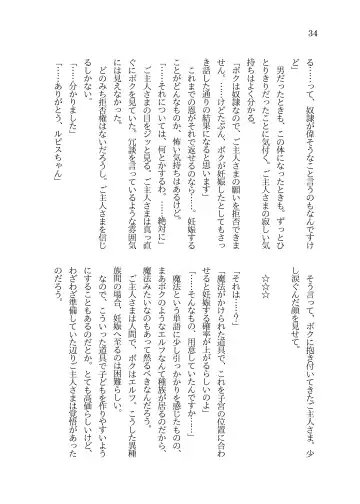 34
る……って、奴隷が偉そうなこと言うのもなんですけ
ど」
　男だったときも、この体になったときも。ずっとひ
とりきりだったことに気付く。ご主人さまの寂しい気
持ちはよく分かる。
「ボクは奴隷なので、ご主人さまの願いを拒否できま
せん。……けどたぶん、ボクが妊娠したとしてもさっ
き話した通りの結果になると思います」
　これまでの恩がそれで返せるのなら……。妊娠する
ことがどんなものか、怖い気持ちはあるけど。
「……それについては、何とかするわ。……絶対に」
　ご主人さまの目をジッと見る。ご主人さまは真っ直
ぐにボクを見ていた。冗談を言っているような雰囲気
には見えなかった。
　どのみち拒否権はないだろうし、ご主人さまを信じ
るしかない。
「……分かりました」
「……ありがとう、ルビスちゃん」
　そう言って、ボクに抱き付いてきたご主人さま。少
し涙ぐんだ顔を見せて。
☆☆☆
「それは……？」
「魔法がかけられた道具で、これを子宮の位置に合わ
せると妊娠する確率が上がるらしいのよ」
「……そんなもの、用意していたんですか…」
　魔法という単語に少し引っかかりを感じたものの、
まあボクのようなエルフなんて種族が居るのだから、
魔法みたいなのもあって然るべきなんだろう。
　ご主人さまは人間で、ボクはエルフ。こうした異種
族間の場合、妊娠へ至るのは困難らしい。
　なので、こういった道具で子どもを作りやすいよう
にすることもあるのだとか。とても高価らしいけど、
わざわざ準備していた辺りご主人さまは覚悟があった
のだろう。